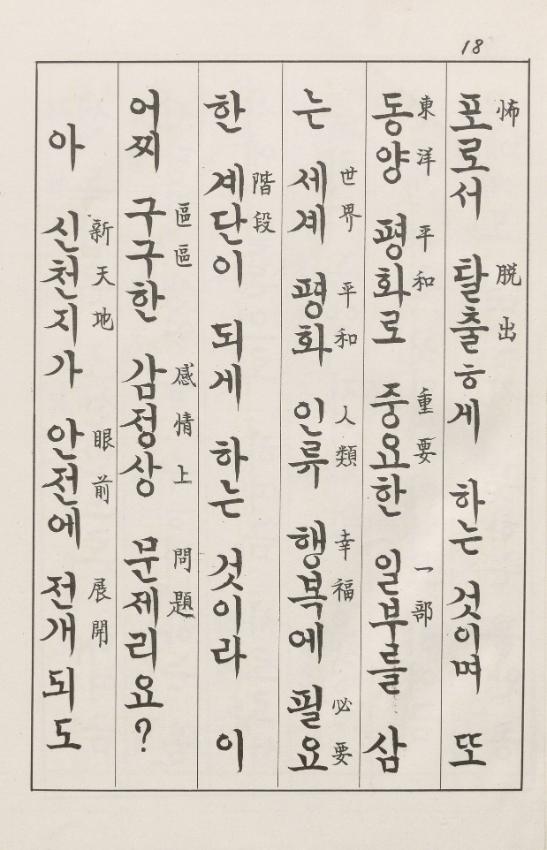 18
포로서 탈출ㅎ게 하는 것이며 또
怖 脱出
동양 평화로 중요한 일부를 삼
東洋 平和 重要 一部
는 세계 평화 인류 행복에 필요
世界 平和 人類 幸福 必要
한 계단이 되게 하는 것이라 이
階段
어찌 구구한 감정상 문제리요?
區區 感情上 問題
아 신천지가 안전에 전개되도
新天地 眼前 展開